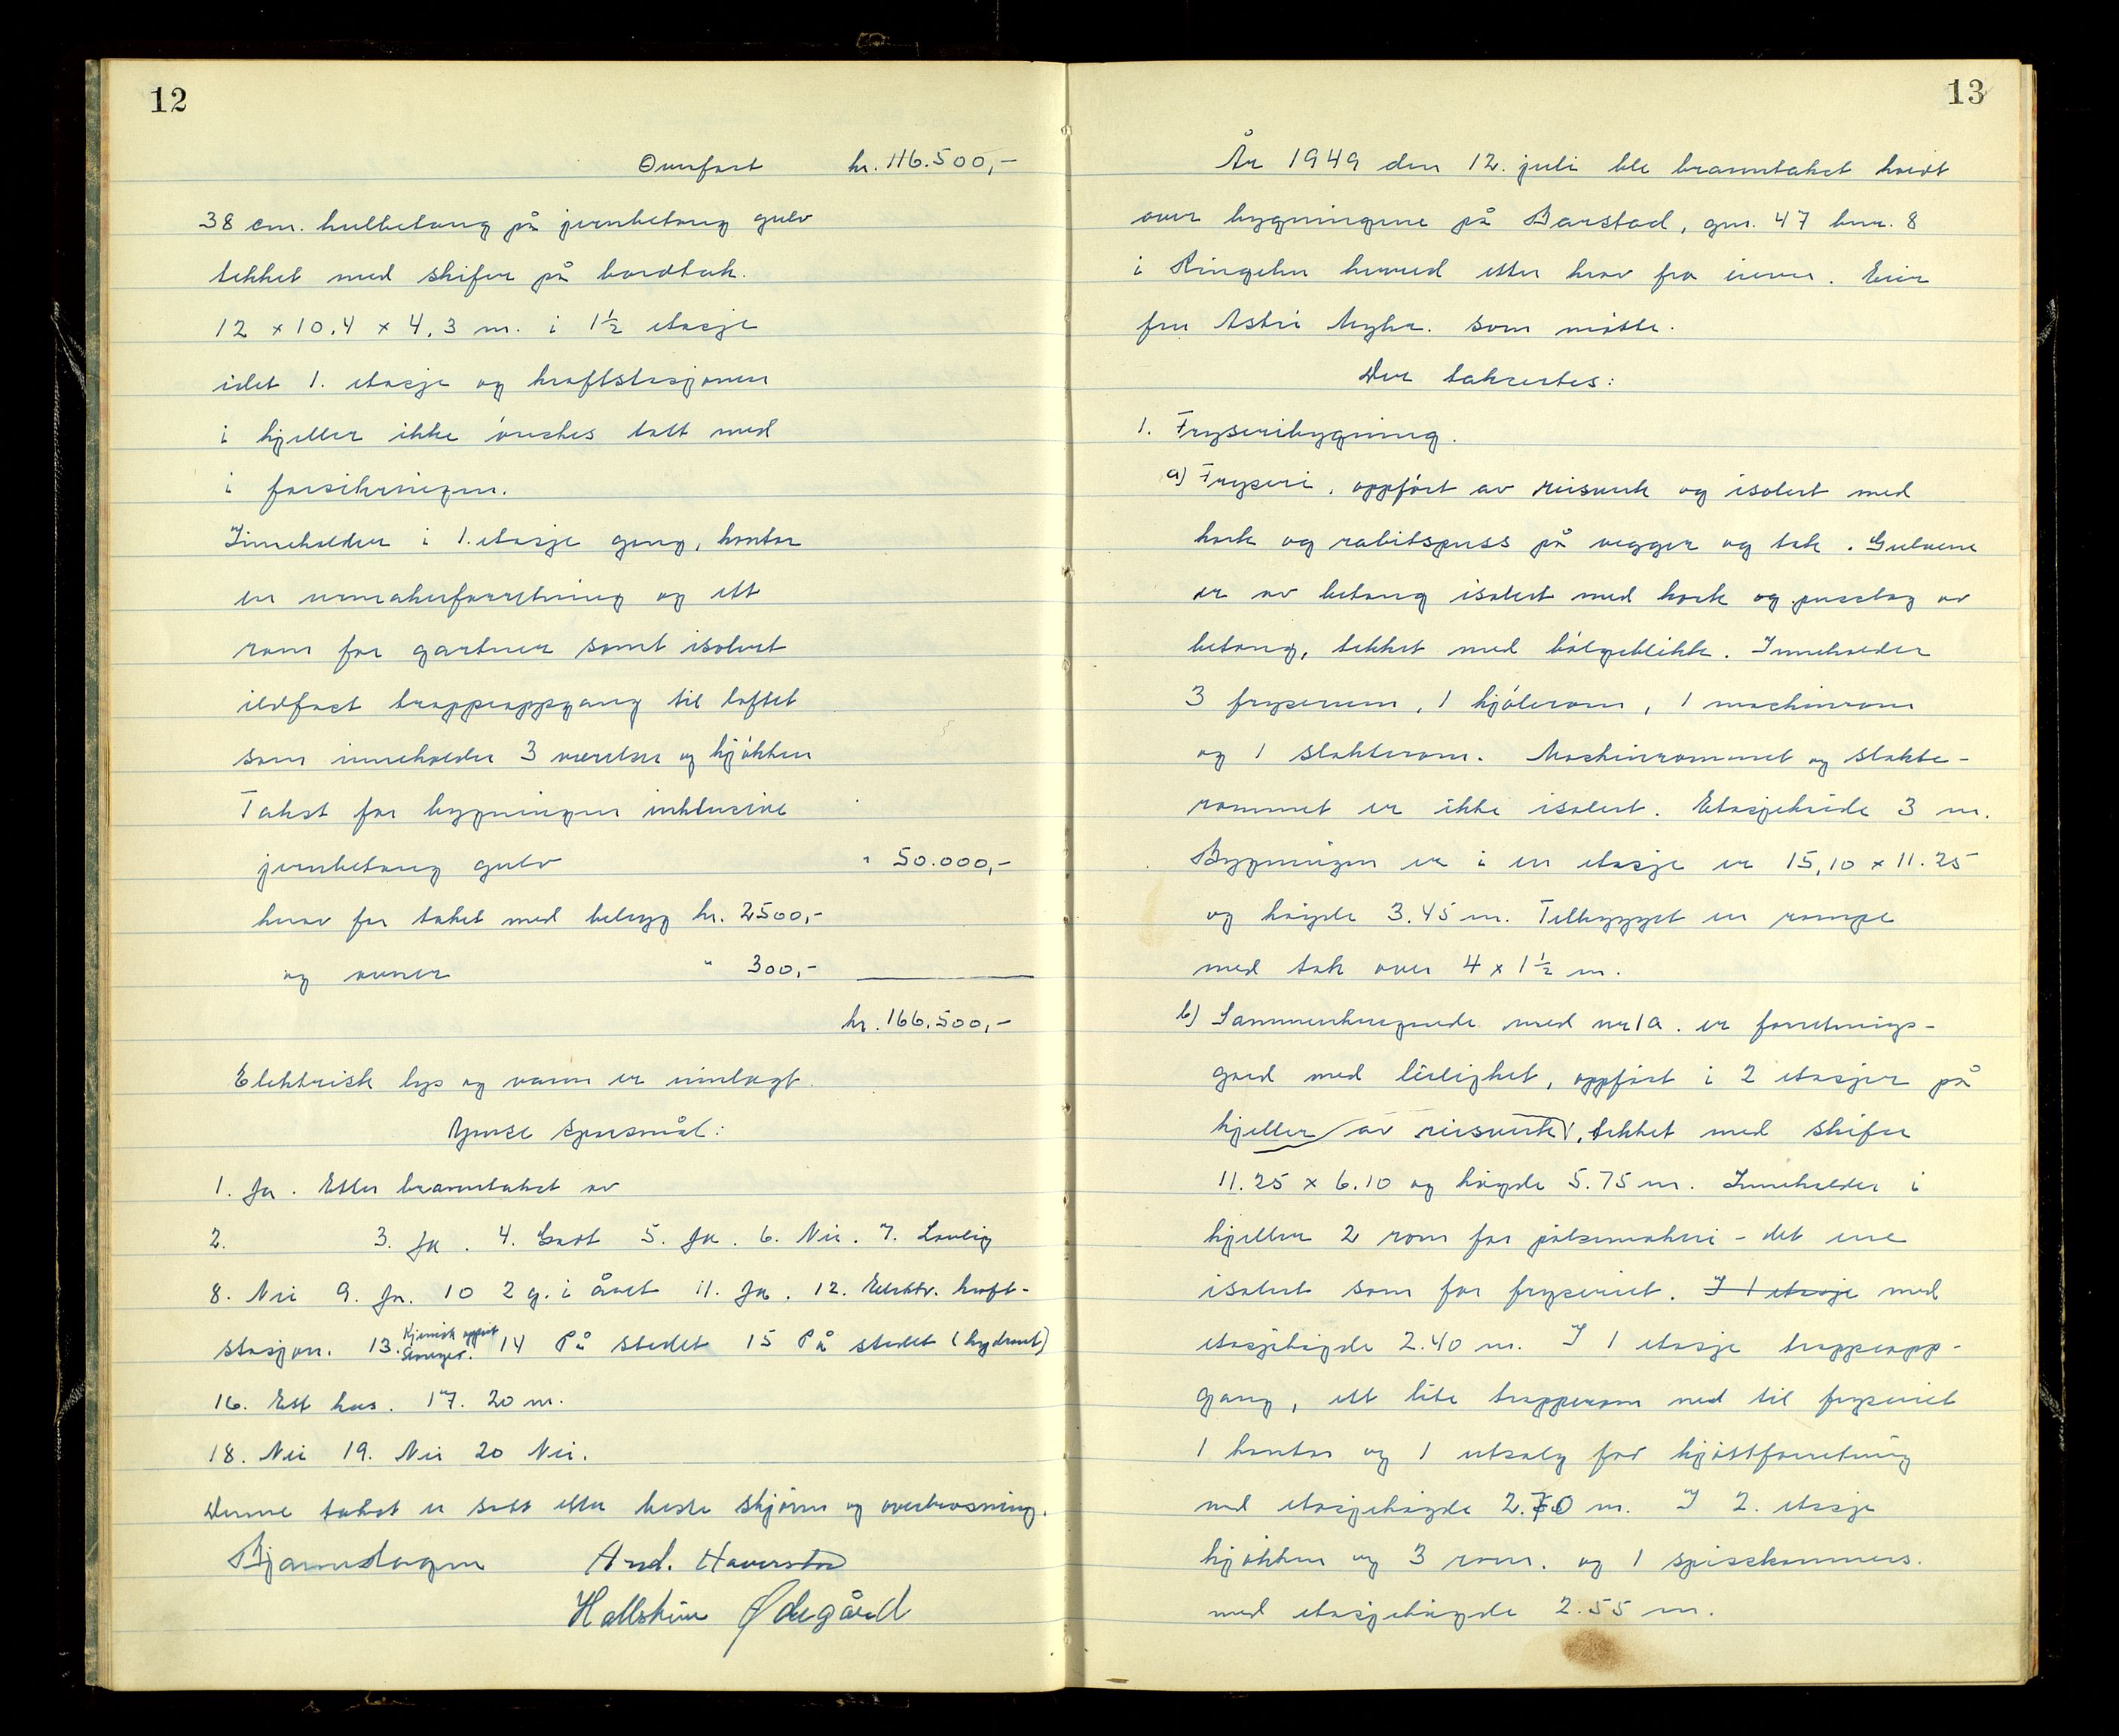 12
Overført kr. 116.500,-
38 cm. hulbetong på jernbetong gulv
tekket med skifer på bordtak.
12 x 10.4 x 4.3 m. i 1½ etasje
idet 1. etasje og kraftstasjonen
i kjeller ikke ønskes tatt med
i forsikringen.
Inneholder i 1. etasje gang, kontor
en urmakerforretning og ett
rom for gartner samt isolert
ildfast trappeoppgang til loftet
som inneholder 3 værelser og kjøkken
Takst for bygningen inklusive
jernbetong gulv " 50.000,-
herav for taket med belegg kr. 2500,-
og ovner " 300,-
kr. 166.500,-
Elektrisk lys og vann er innlagt.
Ymse spørsmål:
1. Ja. Etter branntakst av
2. 3. Ja. 4. Godt 5. Ja. 6. Nei. 7. Lovlig
8. Nei 9. Ja. 10 2 g. i året 11. Ja. 12. Elektr. kraft-
stasjon. 13. Kjemisk 14 På stedet 15 På stedet (hydrant)
16. Ett hus. 17. 20 m.
18. Nei 19. Nei 20 Nei.
Denne takst er satt etter beste skjønn og overbevisning.
And. Haverstad
Hallstein Ødegård
13
År 1949 den 12. juli ble branntakst holdt
over bygningene på Barstad, gnr. 47 bnr. 8
i Ringebu herred etter krav fra eieren. Eier
fru Astri Myhr. som møtte.
Der takseртes:
1. Fryseribygning.
a) Fryseri, oppført av reisverk og isolert med
kork og rabitspuss på vegger og tak. Gulvene
er av betong isolert med kork og pusslag av
betong, tekket med bølgeblikk. Inneholder
3 fryserum, 1 kjølerom, 1 maskinrom
og 1 slakterom. Maskinrommet og slakte-
rommet er ikke isolert. Etasjehøide 3 m.
Bygningen er i en etasje er 15,10 x 11.25
og høyde 3.45 m. Tilbygget en rampe
med tak over 4 x 1½ m.
b) Sammenbyggede med nr 1a. er forretnings-
gård med leilighet, oppført i 2 etasjer på
kjeller av reisverk, tekket med skifer
11.25 x 6.10 og høyde 5.75 m. Inneholder i
kjeller 2 rom for pølsemakeri - det ene
isolert som for fryseriet. I 1 etasje med
etasjehøyde 2.40 m. I 1 etasje trappeopp-
gang, ett lite trapperom ned til fryseriet
1 kontor og 1 utsalg for kjøttforretning
med etasjehøyde 2.70 m. I 2. etasje
kjøkken og 3 rom. og 1 spisskammers.
med etasjehøyde 2.55 m.